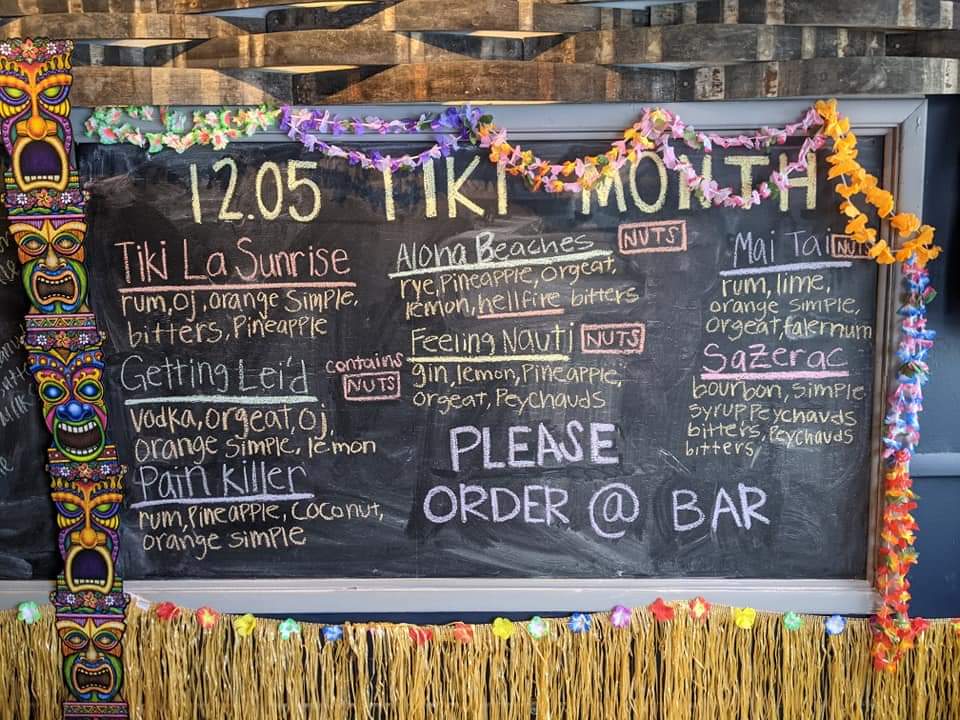 12.05 TIKI MONTH
Tiki La Sunrise
rum, oj, orange simple,
bitters, Pineapple
Getting Lei'd
contains
NUTS
vodka, orgeat, oj,
orange simple, lemon
Pain Killer
rum, Pineapple, Coconut,
orange simple
Aloha Beaches
NUTS
rye, Pineapple, orgeat,
lemon, hellfire bitters
Feeling Nauti
NUTS
gin, lemon, Pineapple,
orgeat, Peychauds
Mai Tai
NUTS
rum, lime,
orange simple,
orgeat, falernum
Sazerac
bourbon, simple
syrup Peychauds
bitters, Peychauds
bitters
PLEASE
ORDER @ BAR